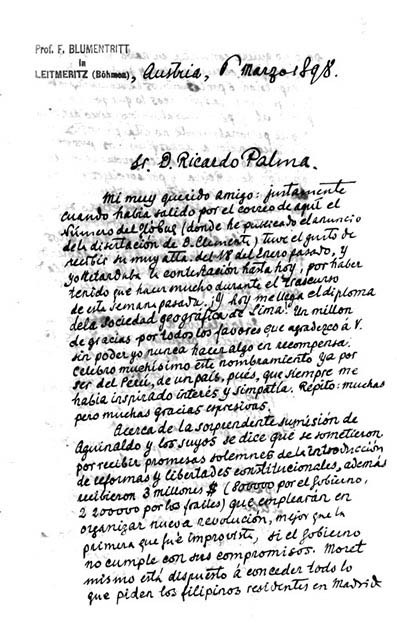 Prof. F. BLUMENTRITT
in
LEITMERITZ (Böhmen), Austria, 6 Marzo 1898.
Sr. D. Ricardo Palma.
Mi muy querido amigo: justamente
cuando había salido por el correo de aquí el
Número del Globus (donde he publicado el anuncio
de la disertación de D. Clemente) tuve el gusto de
recibir su muy atta. del 18 de Enero pasado, y
yo retardaba la contestación hasta hoy, por haber
tenido que hacer mucho durante el transcurso
de esta semana pasada. ¡Y hoy me llega el diploma
de la Sociedad geográfica de Lima! Un millon
de gracias por todos los favores que agradezco á V.
sin poder yo nunca hacer algo en recompensa.
Celebro muchísimo este nombramiento ya por
ser del Perú, de un país, pués, que siempre me
había inspirado interés y simpatía. Repito: muchas
pero muchas gracias espresivas.
Acerca de la sorpendente sumisión de
Aguinaldo y los suyos se dice que se sometieron
por recibir promesas solemnes de la introducción
de reformas y libertades constitucionales, además
recibieron 3 millones $ (800000 por el Gobierno,
2 200000 por los frailes) que emplearán en
organizar nueva revolución, mejor que la
primera que fué improvista, si el Gobierno
no cumple con sus compromisos. Moret
mismo está dispuesto á conceder todo lo
que piden los filipinos residentes en Madrid